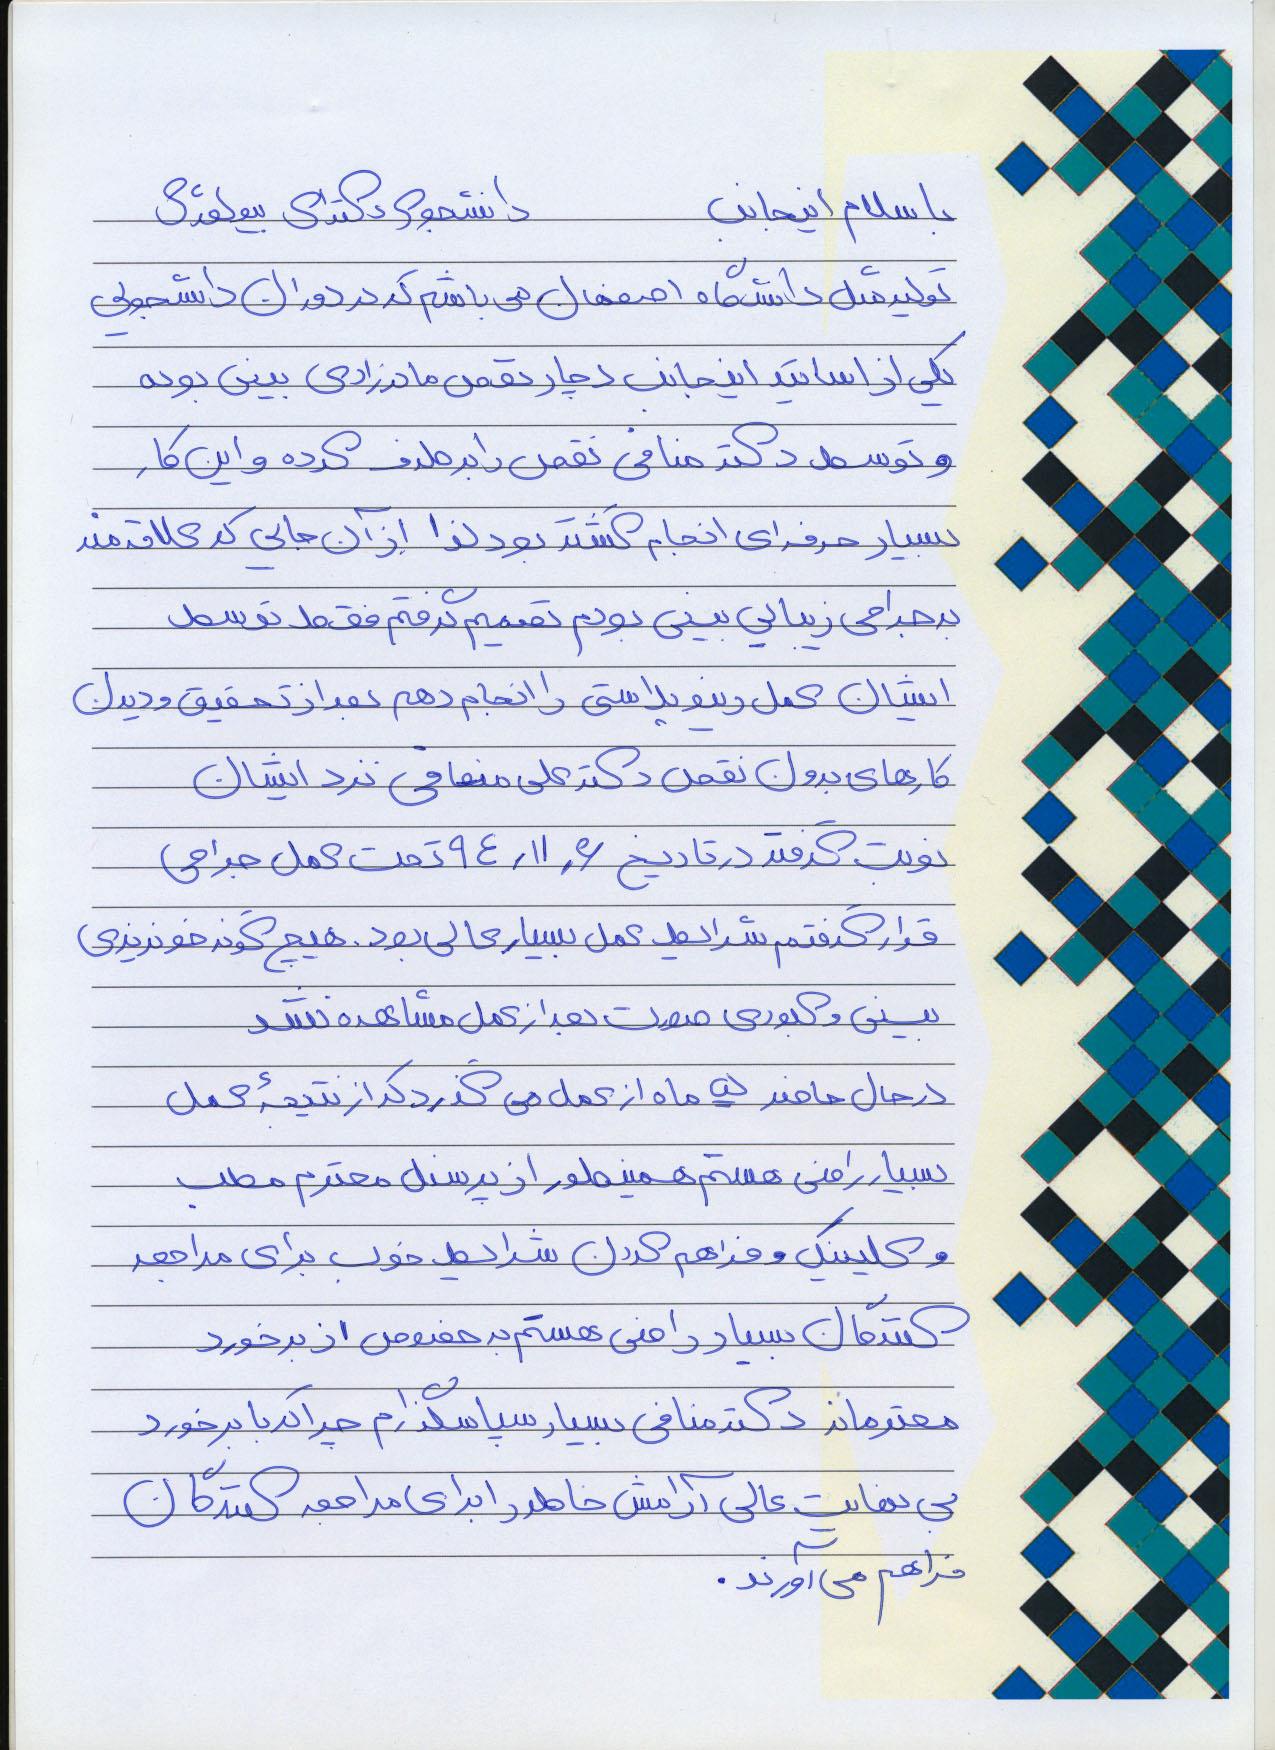 با سلام اینجانب دانشجوی دکترای بیولوژی
تولید مثل دانشگاه اصفهان می باشم که در دوران دانشجویی
یکی از اساتید اینجانب دچار نقص مادرزادی بینی بوده
و توسط دکتر منافی نقص را برطرف کرده و این کار
بسیار حرفه ای انجام گشته بود لذا از آن جایی که علاقه مند
به جراحی زیبایی بینی بودم تصمیم گرفتم فقط توسط
ایشان عمل رینوپلاستی را انجام دهم بعد از تحقیق و دیدن
کارهای بدون نقص دکتر علی منافی نزد ایشان
نوبت گرفته در تاریخ ۹٤٫۱۱٫۶ تحت عمل جراحی
قرار گرفتم شرایط عمل بسیار عالی بود. هیچ گونه خونریزی
بینی و کبودی صورت بعد از عمل مشاهده نشد
در حال حاضر ماه از عمل می گذرد که از نتیجهٔ عمل
بسیار راضی هستم همینطور از پرسنل محترم مطب
و کلینیک و فراهم کردن شرایط خوب برای مراجعه
کنندگان بسیار راضی هستم به خصوص از برخورد
محترمانه دکتر منافی بسیار سپاسگذارم چرا که با برخورد
بی نهایت عالی آرامش خاطر را برای مراجعه کنندگان
فراهم می آورند.